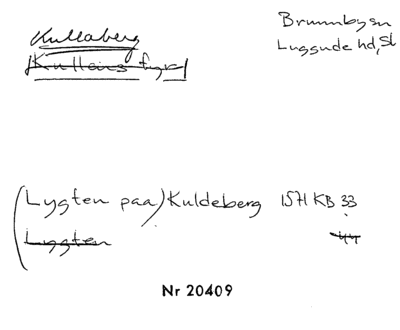 Kullaberg
Kullens fyr
Brunnby sn
Luggude hd, Sk
(Lygten paa) Kuldeberg 1571 KB 33
Lygten 44
Nr 20409